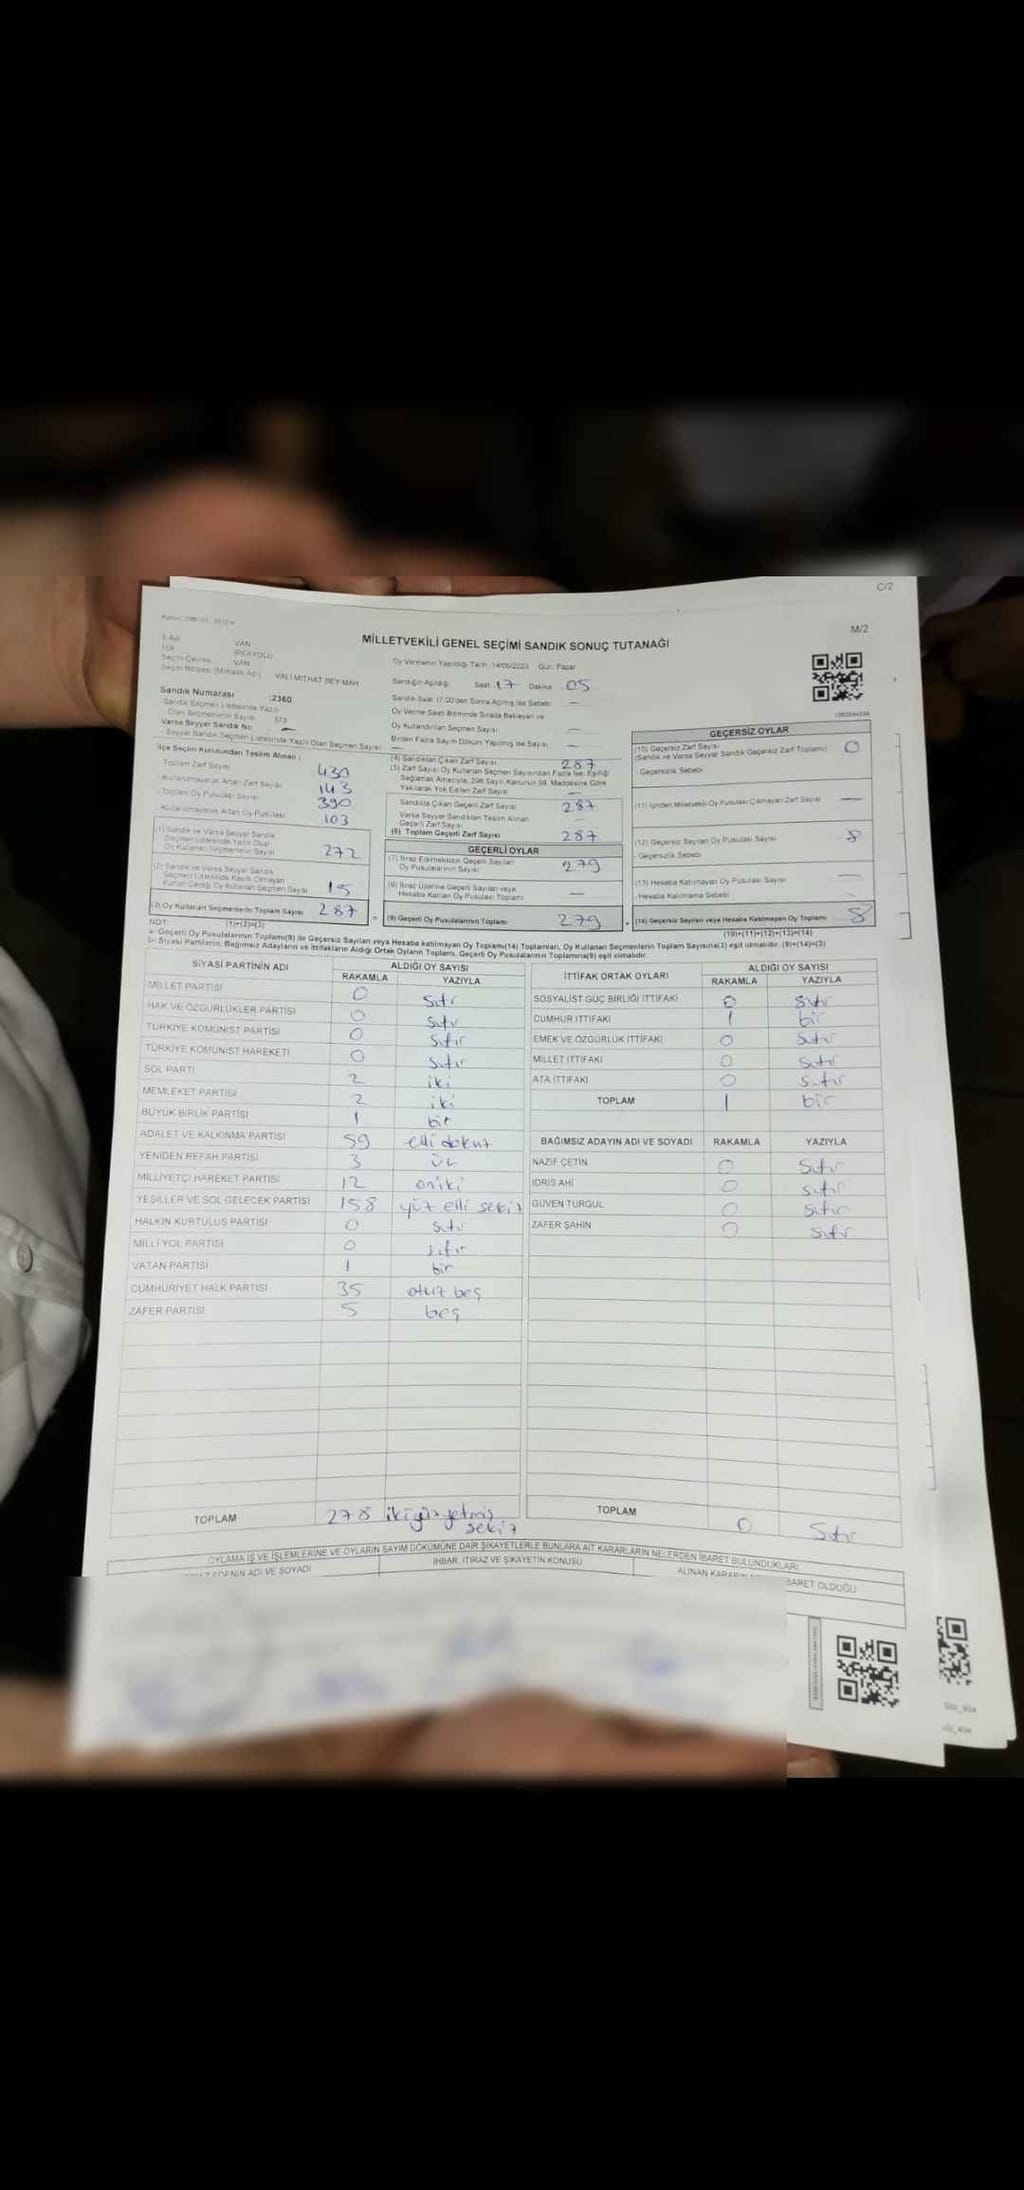 C/2
M/2
MİLLETVEKİLİ GENEL SEÇİMİ SANDIK SONUÇ TUTANAĞI
İl Adı VAN
İlçe İPEKYOLU
Seçim Çevresi VAN
Seçim Bölgesi (Mahalle Adı) VALİ MİTHAT BEY MAH.
Oy Vermenin Yapıldığı Tarih 14/05/2023 Gün: Pazar
Sandığın Açıldığı Saat 17 Dakika 05
Sandık Numarası :2360
Sandık Saat 17.00'den Sonra Açılmış İse Sebebi —
Sandık Seçmen Listesinde Yazılı
Olan Seçmenlerin Sayısı 373
Oy Verme Saati Bitiminde Sırada Bekleyen ve
Oy Kullandırılan Seçmen Sayısı —
Varsa Seyyar Sandık No —
Seyyar Sandık Seçmen Listesinde Yazılı Olan Seçmen Sayısı —
Birden Fazla Sayım Döküm Yapılmış İse Sayısı —
İlçe Seçim Kurulundan Teslim Alınan ;
Toplam Zarf Sayısı 430
Kullanılmayarak Artan Zarf Sayısı 143
Toplam Oy Pusulası Sayısı 390
Kullanılmayarak Artan Oy Pusulası 103
(1) Sandık ve Varsa Seyyar Sandık
Seçmen Listesinde Yazılı Olup
Oy Kullanan Seçmenlerin Sayısı 272
(2) Sandık ve Varsa Seyyar Sandık
Seçmen Listesinde Kayıtlı Olmayan
Kanun Gereği Oy Kullanan Seçmen Sayısı 15
(3) Oy Kullanan Seçmenlerin Toplam Sayısı 287
(1)+(2)=(3)
(4) Sandıktan Çıkan Zarf Sayısı 287
(5) Zarf Sayısı Oy Kullanan Seçmen Sayısından Fazla İse; Eşitliği
Sağlamak Amacıyla, 298 Sayılı Kanunun 98. Maddesine Göre
Yakılarak Yok Edilen Zarf Sayısı —
Sandıkta Çıkan Geçerli Zarf Sayısı 287
Varsa Seyyar Sandıktan Teslim Alınan
Geçerli Zarf Sayısı —
(6) Toplam Geçerli Zarf Sayısı 287
GEÇERLİ OYLAR
(7) İtiraz Edilmeksizin Geçerli Sayılan
Oy Pusulalarının Sayısı 279
(8) İtiraz Üzerine Geçerli Sayılan veya
Hesaba Katılan Oy Pusulası Toplamı —
= (9) Geçerli Oy Pusulalarının Toplamı: 279
GEÇERSİZ OYLAR
(10) Geçersiz Zarf Sayısı
(Sandık ve Varsa Seyyar Sandık Geçersiz Zarf Toplamı) 0
Geçersizlik Sebebi
(11) İçinden Milletvekili Oy Pusulası Çıkmayan Zarf Sayısı —
(12) Geçersiz Sayılan Oy Pusulası Sayısı 8
- Geçersizlik Sebebi
(13) Hesaba Katılmayan Oy Pusulası Sayısı —
- Hesaba Katılmama Sebebi —
+ (14) Geçersiz Sayılan veya Hesaba Katılmayan Oy Toplamı 8
(10)+(11)+(12)+(13)=(14)
NOT:
a- Geçerli Oy Pusulalarının Toplamı(9) ile Geçersiz Sayılan veya Hesaba katılmayan Oy Toplamı(14) Toplamları, Oy Kullanan Seçmenlerin Toplam Sayısına(3) eşit olmalıdır. (9)+(14)=(3)
b- Siyasi Partilerin, Bağımsız Adayların ve İttifakların Aldığı Ortak Oyların Toplamı, Geçerli Oy Pusulalarının Toplamına(9) eşit olmalıdır.
SİYASİ PARTİNİN ADI ALDIĞI OY SAYISI
RAKAMLA YAZIYLA
MİLLET PARTİSİ 0 sıfır
HAK VE ÖZGÜRLÜKLER PARTİSİ 0 sıfır
TÜRKİYE KOMÜNİST PARTİSİ 0 sıfır
TÜRKİYE KOMÜNİST HAREKETİ 0 sıfır
SOL PARTİ 2 iki
MEMLEKET PARTİSİ 2 iki
BÜYÜK BİRLİK PARTİSİ 1 bir
ADALET VE KALKINMA PARTİSİ 59 elli dokuz
YENİDEN REFAH PARTİSİ 3 üç
MİLLİYETÇİ HAREKET PARTİSİ 12 oniki
YEŞİLLER VE SOL GELECEK PARTİSİ 158 yüz elli sekiz
HALKIN KURTULUŞ PARTİSİ 0 sıfır
MİLLİ YOL PARTİSİ 0 sıfır
VATAN PARTİSİ 1 bir
CUMHURİYET HALK PARTİSİ 35 otuz beş
ZAFER PARTİSİ 5 beş
TOPLAM 278 ikiyüz yetmiş
sekiz
İTTİFAK ORTAK OYLARI ALDIĞI OY SAYISI
RAKAMLA YAZIYLA
SOSYALİST GÜÇ BİRLİĞİ İTTİFAKI 0 sıfır
CUMHUR İTTİFAKI 1 bir
EMEK VE ÖZGÜRLÜK İTTİFAKI 0 sıfır
MİLLET İTTİFAKI 0 sıfır
ATA İTTİFAKI 0 sıfır
TOPLAM 1 bir
BAĞIMSIZ ADAYIN ADI VE SOYADI RAKAMLA YAZIYLA
NAZİF ÇETİN 0 sıfır
İDRİS AHİ 0 sıfır
GÜVEN TURGUL 0 sıfır
ZAFER ŞAHİN 0 sıfır
TOPLAM 0 Sıfır
OYLAMA İŞ VE İŞLEMLERİNE VE OYLARIN SAYIM DÖKÜMÜNE DAİR ŞİKAYETLERLE BUNLARA AİT KARARLARIN NELERDEN İBARET BULUNDUKLARI
EDENİN ADI VE SOYADI İHBAR, İTİRAZ VE ŞİKAYETİN KONUSU ALINAN KARARIN BARET OLDUĞU